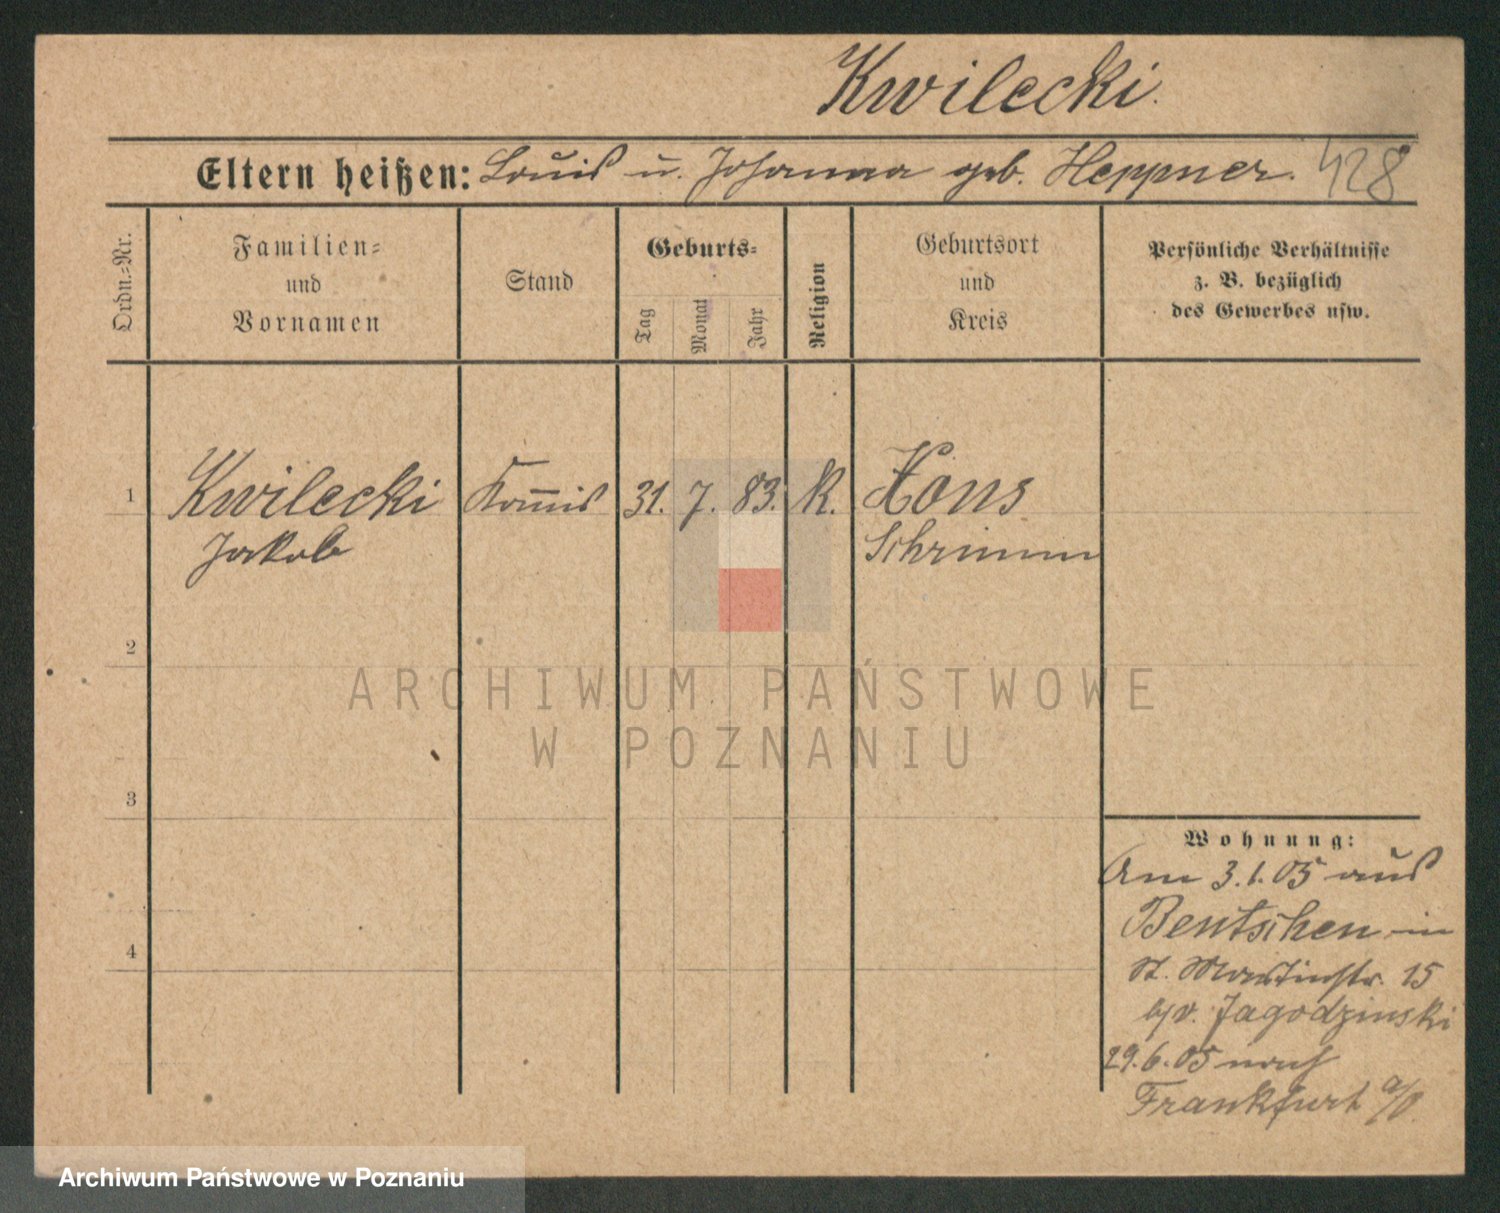 Kwilecki.
Eltern heißen: Louis u. Johanna geb. Heppner. 428
Ordn.=Nr.
Familien=
und
Vornamen
Stand
Geburts=
Tag
Monat
Jahr
Religion
Geburtsort
und
Kreis
Persönliche Verhältnisse
z. B. bezüglich
des Gewerbes usw.
1 Kwilecki Kom̅is 31. 7. 83. K. Xons
Jakob Schrimm
2
ARCHIWUM PAŃSTWOWE
W POZNANIU
3
Wohnung:
Am 3.1.05 aus
Bentschen in
St. Martinstr. 15
b/v. Jagodzinski
4
29.6.05 nach
Frankfurt a/O.
Archiwum Państwowe w Poznaniu